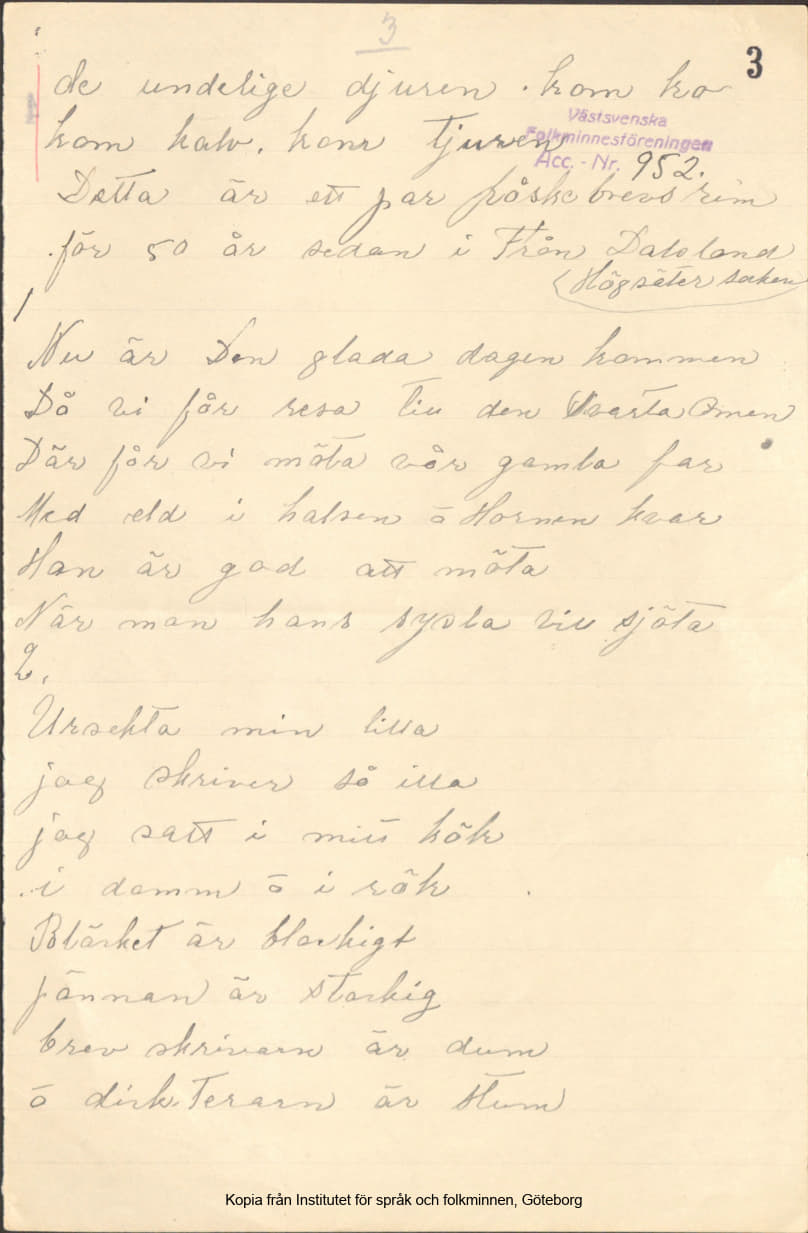 3
3
de undelige djuren. kom ko
kom kalv. kom tjuren
Västsvenska
Folkminnesföreningen
Acc. - Nr. 952.
Detta är ett par påskebrevs rim
för 50 år sedan i Från Dalsland
(Högsäter socken
1
Nu är Den glada dagen kommen
Då vi får resa till den Svarta Omen
Där får vi möta vår gamla far
Med eld i halsen ō Hornen kvar
Han är god att möta
När man hans sysla vill sjöta
2.
Ursekta min lilla
jag skriver så illa
jag satt i mitt kök
i damm ō i rök
Bläcket är blackigt
pännan är stackig
brev skrivarn är dum
ō dickterarn är stum
Kopia från Institutet för språk och folkminnen, Göteborg